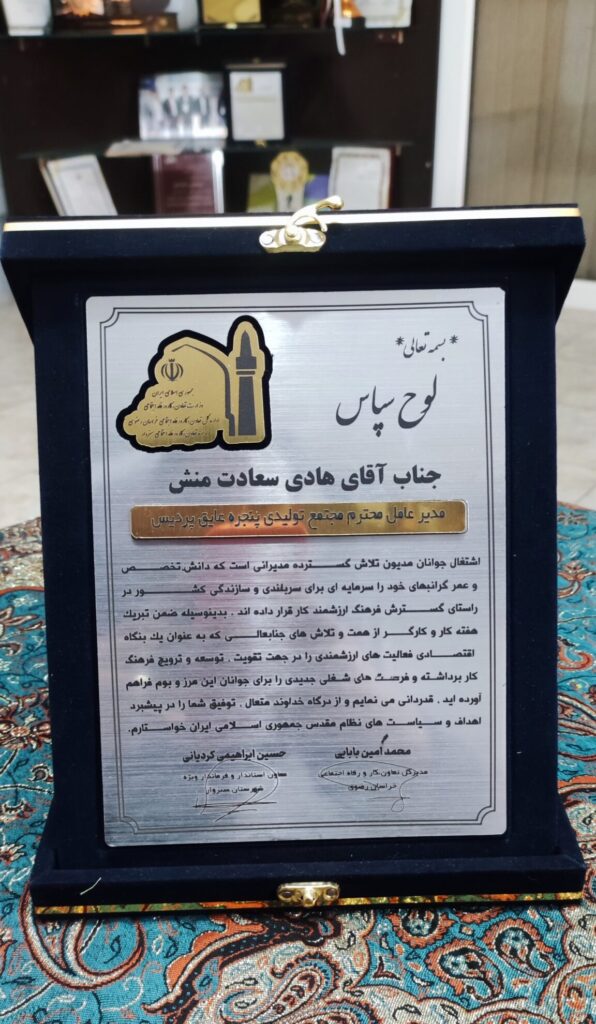 * بسمه تعالی *
لوح سپاس
جمهوری اسلامی ایران
وزارت تعاون، کار و رفاه اجتماعی
اداره کل تعاون، کار و رفاه اجتماعی خراسان رضوی
تعاون، کار و رفاه اجتماعی سبزوار
جناب آقای هادی سعادت منش
مدیر عامل محترم مجتمع تولیدی پنجره عایق پردیس
اشتغال جوانان مدیون تلاش گسترده مدیرانی است که دانش، تخصص
و عمر گرانبهای خود را سرمایه ای برای سربلندی و سازندگی کشور در
راستای گسترش فرهنگ ارزشمند کار قرار داده اند . بدینوسیله ضمن تبریک
هفته کار و کارگر از همت و تلاش های جنابعالی که به عنوان یک بنگاه
اقتصادی فعالیت های ارزشمندی را در جهت تقویت ، توسعه و ترویج فرهنگ
کار برداشته و فرصت های شغلی جدیدی را برای جوانان این مرز و بوم فراهم
آورده اید . قدردانی می نمایم و از درگاه خداوند متعال ، توفیق شما را در پیشبرد
اهداف و سیاست های نظام مقدس جمهوری اسلامی ایران خواستارم.
محمد امین بابایی
مدیرکل تعاون، کار و رفاه اجتماعی
خراسان رضوی
حسین ابراهیمی کردیانی
معاون استاندار و فرماندار ویژه
شهرستان سبزوار